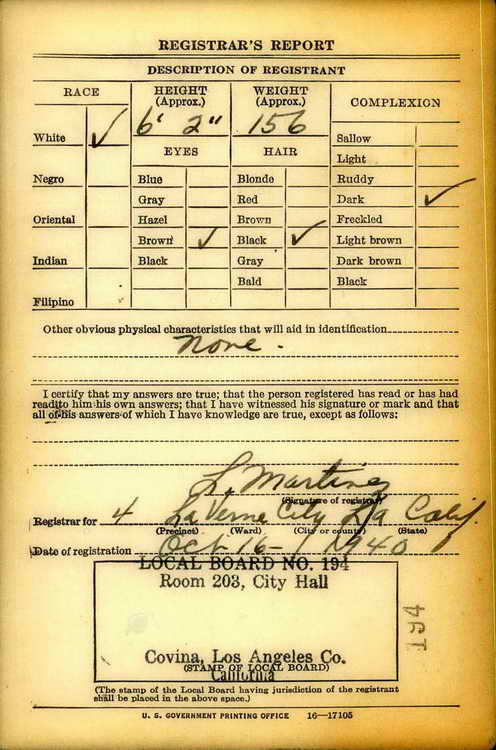 REGISTRAR'S REPORT
DESCRIPTION OF REGISTRANT
RACE
HEIGHT (Approx.)
WEIGHT (Approx.)
COMPLEXION
6' 2"
156
White ✓
Sallow
EYES
HAIR
Light
Negro
Blue
Blonde
Ruddy
Gray
Red
Dark ✓
Oriental
Hazel
Brown
Freckled
Brown ✓
Black ✓
Light brown
Indian
Black
Gray
Dark brown
Bald
Black
Filipino
Other obvious physical characteristics that will aid in identification
None.
I certify that my answers are true; that the person registered has read or has had
read to him his own answers; that I have witnessed his signature or mark and that
all of his answers of which I have knowledge are true, except as follows:
L. Martinez
(Signature of registrar)
Registrar for 4 LaVerne City LA Calif.
(Precinct) (Ward) (City or county) (State)
Date of registration Oct-16-1940
LOCAL BOARD NO. 194
Room 203, City Hall
194
Covina, Los Angeles Co.
(STAMP OF LOCAL BOARD)
California
(The stamp of the Local Board having jurisdiction of the registrant
shall be placed in the above space.)
U. S. GOVERNMENT PRINTING OFFICE 16—17105